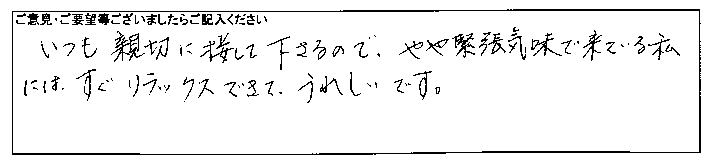 ご意見・ご要望等ございましたらご記入ください
いつも親切に接して下さるので、やや緊張気味で来ている私
には、すぐリラックスできて、うれしいです。